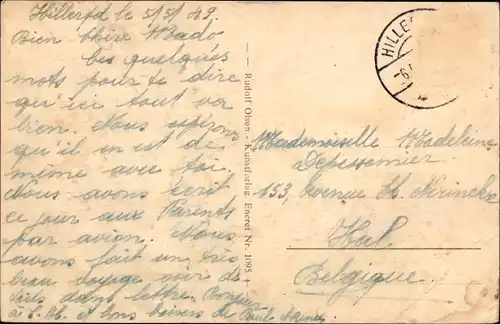 Hillerød le 5/5/49.
Bien chère Mado
Ces quelques
mots pour te dire
qu'ici tout va
bien. Nous espérons
qu'il en est de
même avec toi.
Nous avons écrit
ce jour aux Parents
par avion. Nous
avons fait un très
beau voyage voir dé
tails dans lettre. Bonjour
à et bons baisers de Paul
— Rudolf Olsen - Kunstforlag. Eneret Nr. 1095 —
HILLE
Mademoiselle Madeleine
153, Avenue
Hal.
Belgique